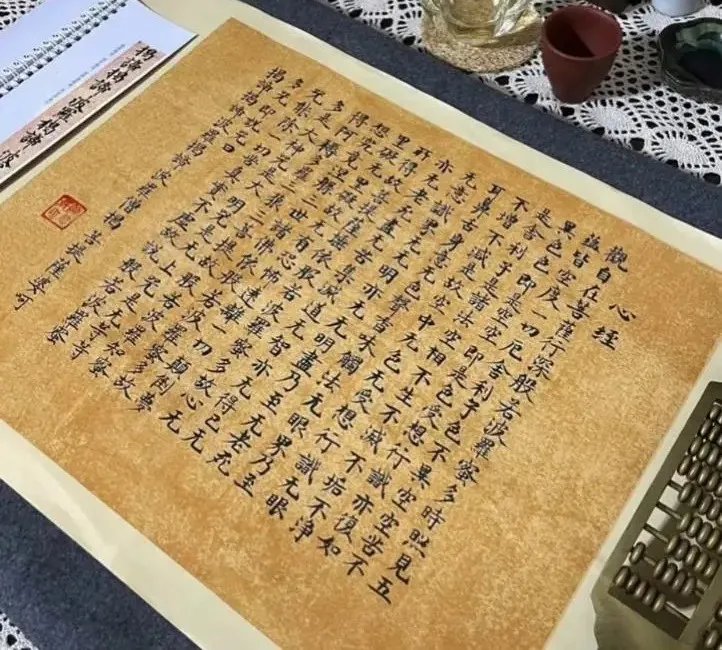 心經
觀自在菩薩行深般若波羅蜜多時照見五
蘊皆空度一切苦厄舍利子色不異空空不
異色色即是空空即是色受想行識亦復如
是舍利子是諸法空相不生不滅不垢不淨
不增不減是故空中无色无受想行識无眼
耳鼻舌身意无色聲香味觸法无眼界乃至
无意識界无无明亦无无明盡乃至无老死
亦无老死盡无苦集滅道无智亦无得以无
所得故菩提薩埵依般若波羅蜜多故心无
罣礙无罣礙故无有恐怖遠離一切顛倒夢
想究竟涅槃三世諸佛依般若波羅蜜多故
得阿耨多羅三藐三菩提故知般若波羅蜜
多是大神咒是大明咒是无上咒是无等等
咒能除一切苦真實不虛故說般若波羅蜜
多咒即說咒曰
揭諦揭諦 波羅揭諦 波羅僧揭諦 菩提薩婆訶
揭諦揭諦波羅揭諦